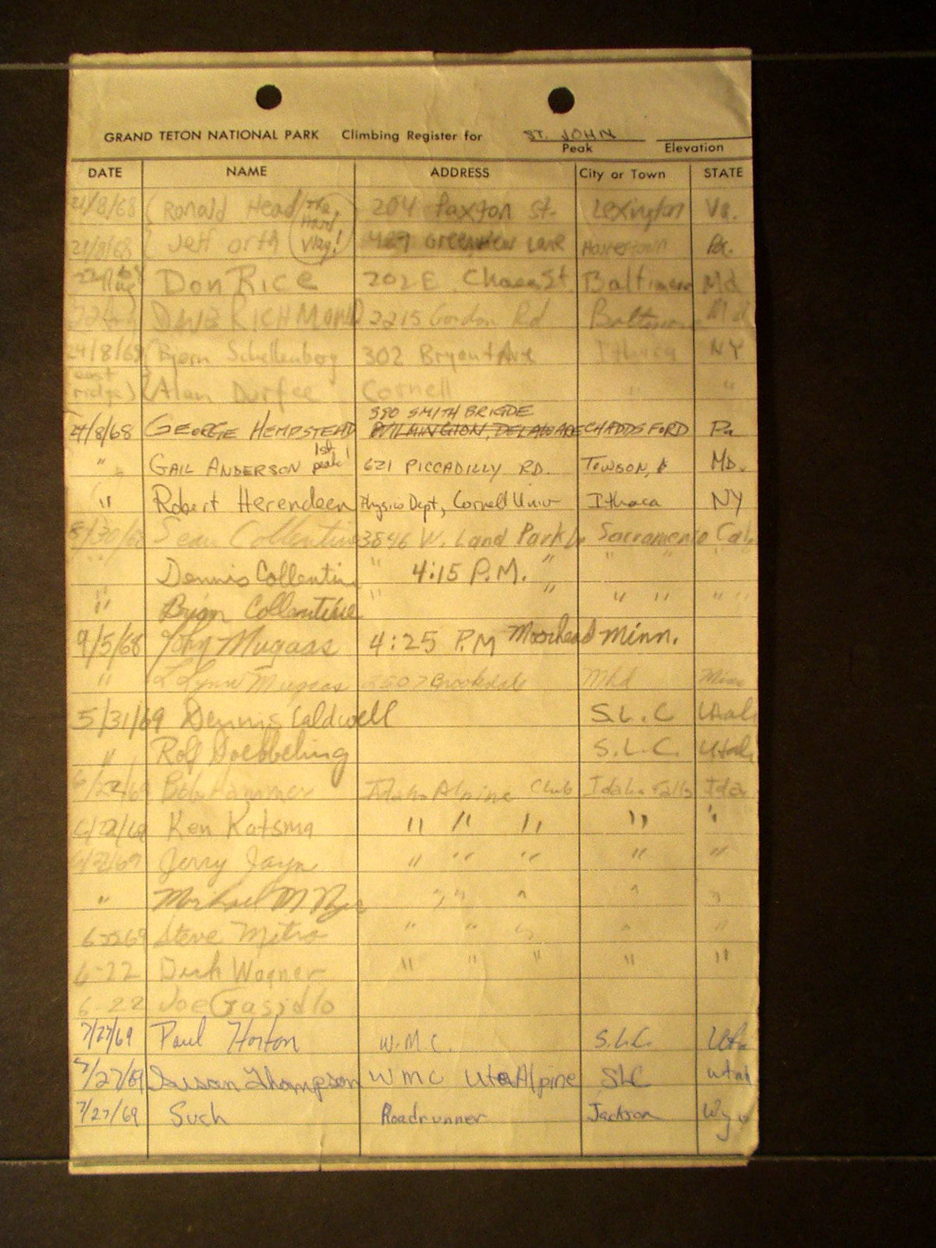 GRAND TETON NATIONAL PARK Climbing Register for ST. JOHN
Peak Elevation
DATE NAME ADDRESS City or Town STATE
21/8/68 Ronald Head (The Hard Way!) 204 Paxton St. Lexington Va.
21/8/68 Jeff Orth Greenview Lane Havertown Pa.
Don Rice 202 E. Chase St. Baltimore Md
DAVE RICHMOND 2215 Gordon Rd Md
24/8/68 Bjorn Schellenberg 302 Bryant Ave Ithaca NY
(east ridge) Alan Durfee Cornell " "
380 SMITH BRIGDE
27/8/68 GEORGE HEMPSTEAD WILMINGTON, DELAWARE CHADDS FORD Pa
" GAIL ANDERSON 1st peak! 621 PICCADILLY RD. TOWSON, MD.
" Robert Herendeen Physics Dept, Cornell Univ Ithaca NY
8/30/68 Sean Collentine 3846 W. Land Park Dr Sacramento Cal
" Dennis Collentine " 4:15 P.M. " " " "
" Brian Collentine " " " " "
9/5/68 Mugaas 4:25 P.M Moorhead Minn.
" L Lynn Mugaas 2507 Brookdale Mhd Minn
5/31/69 Dennis Caldwell S.L.C Utah
" Rolf Doebbeling S.L.C. Utah
6/22/69 Bob Hammer Idaho Alpine Club Idaho Falls Ida
6/22/69 Ken Katsma " " " " "
6/22/69 Jerry Jayn " " " " "
" Michael " " " " "
6-22-69 Steve Mitro " " " " "
6-22 Dick Wagner " " " " "
6-22 Joe
7/27/69 Paul Horton W.M.C. S.L.C. Uta
7/27/69 Susan Thompson WMC SLC Utah
7/27/69 Such Roadrunner Jackson Wyo